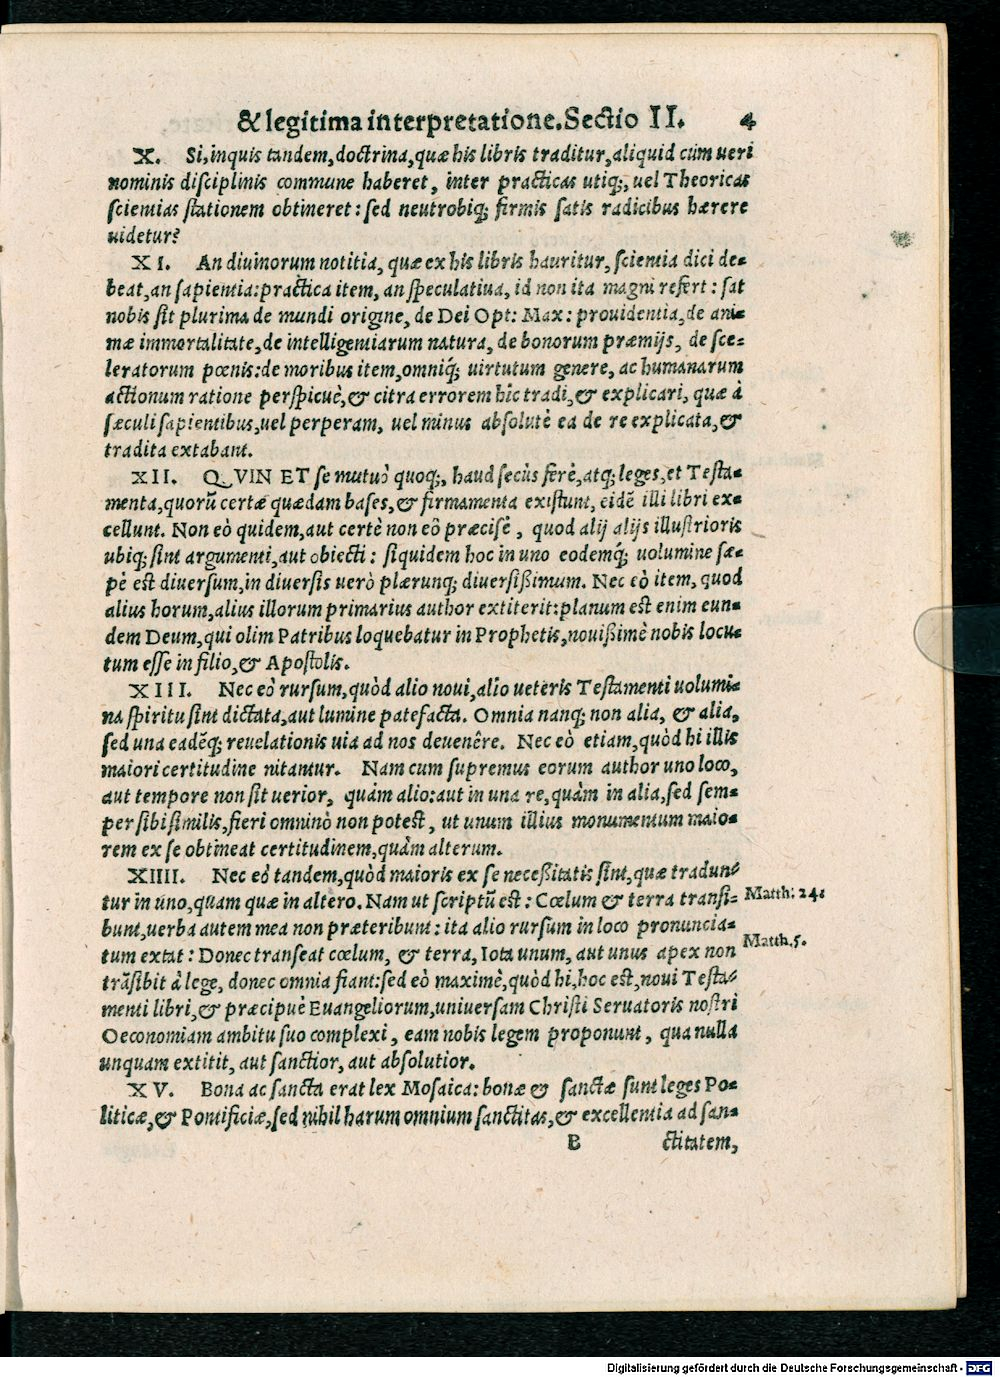 & legitima interpretatione. Sectio II. 4
X. Si, inquis tandem, doctrina, quæ his libris traditur, aliquid cùm ueri
nominis disciplinis commune haberet, inter practicas utiq;, uel Theoricas
scientias stationem obtineret: sed neutrobiq; firmis satis radicibus hærere
uidetur?
XI. An diuinorum notitia, quæ ex his libris hauritur, scientia dici de-
beat, an sapientia: practica item, an speculatiua, id non ita magni refert: sat
nobis sit plurima de mundi origine, de Dei Opt: Max: prouidentia, de ani-
mæ immortalitate, de intelligentiarum natura, de bonorum præmijs, de sce-
leratorum pœnis: de moribus item, omniq́; uirtutum genere, ac humanarum
actionum ratione perspicuè, & citra errorem hîc tradi, & explicari, quæ à
sæculi sapientibus, uel perperam, uel minus absolutè ea de re explicata, &
tradita extabant.
XII. QVIN ET se mutuò quoq;, haud secùs ferè, atq; leges, et Testa-
menta, quorū certæ quædam bases, & firmamenta existunt, eidē illi libri ex-
cellunt. Non eò quidem, aut certè non eò præcisè, quod alij alijs illustrioris
ubiq; sint argumenti, aut obiecti: siquidem hoc in uno eodemq́; uolumine sæ-
pè est diuersum, in diuersis uerò plærunq; diuersißimum. Nec eò item, quod
alius horum, alius illorum primarius author extiterit: planum est enim eun-
dem Deum, qui olim Patribus loquebatur in Prophetis, nouißimè nobis locu-
tum esse in filio, & Apostolis.
XIII. Nec eò rursum, quòd alio noui, alio ueteris Testamenti uolumi-
na spiritu sint dictata, aut lumine patefacta. Omnia nanq; non alia, & alia,
sed una eadēq; reuelationis uia ad nos deuenêre. Nec eò etiam, quòd hi illis
maiori certitudine nitantur. Nam cum supremus eorum author uno loco,
aut tempore non sit uerior, quàm alio: aut in una re, quàm in alia, sed sem-
per sibi similis, fieri omninò non potest, ut unum illius monumentum maio-
rem ex se obtineat certitudinem, quàm alterum.
XIIII. Nec eò tandem, quòd maioris ex se neceßitatis sint, quæ tradun-
tur in uno, quam quæ in altero. Nam ut scriptū est: Cœlum & terra transi- Matth: 24.
bunt, uerba autem mea non præteribunt: ita alio rursum in loco pronuncia-
tum extat: Donec transeat cœlum, & terra, Iota unum, aut unus apex non Matth. 5.
trāsibit à lege, donec omnia fiant: sed eò maximè, quòd hi, hoc est, noui Testa-
menti libri, & præcipuè Euangeliorum, uniuersam Christi Seruatoris nostri
Oeconomiam ambitu suo complexi, eam nobis legem proponunt, qua nulla
unquam extitit, aut sanctior, aut absolutior.
XV. Bona ac sancta erat lex Mosaica: bonæ & sanctæ sunt leges Po-
liticæ, & Pontificiæ, sed nihil harum omnium sanctitas, & excellentia ad san-
B ctitatem,
Digitalisierung gefördert durch die Deutsche Forschungsgemeinschaft - DFG